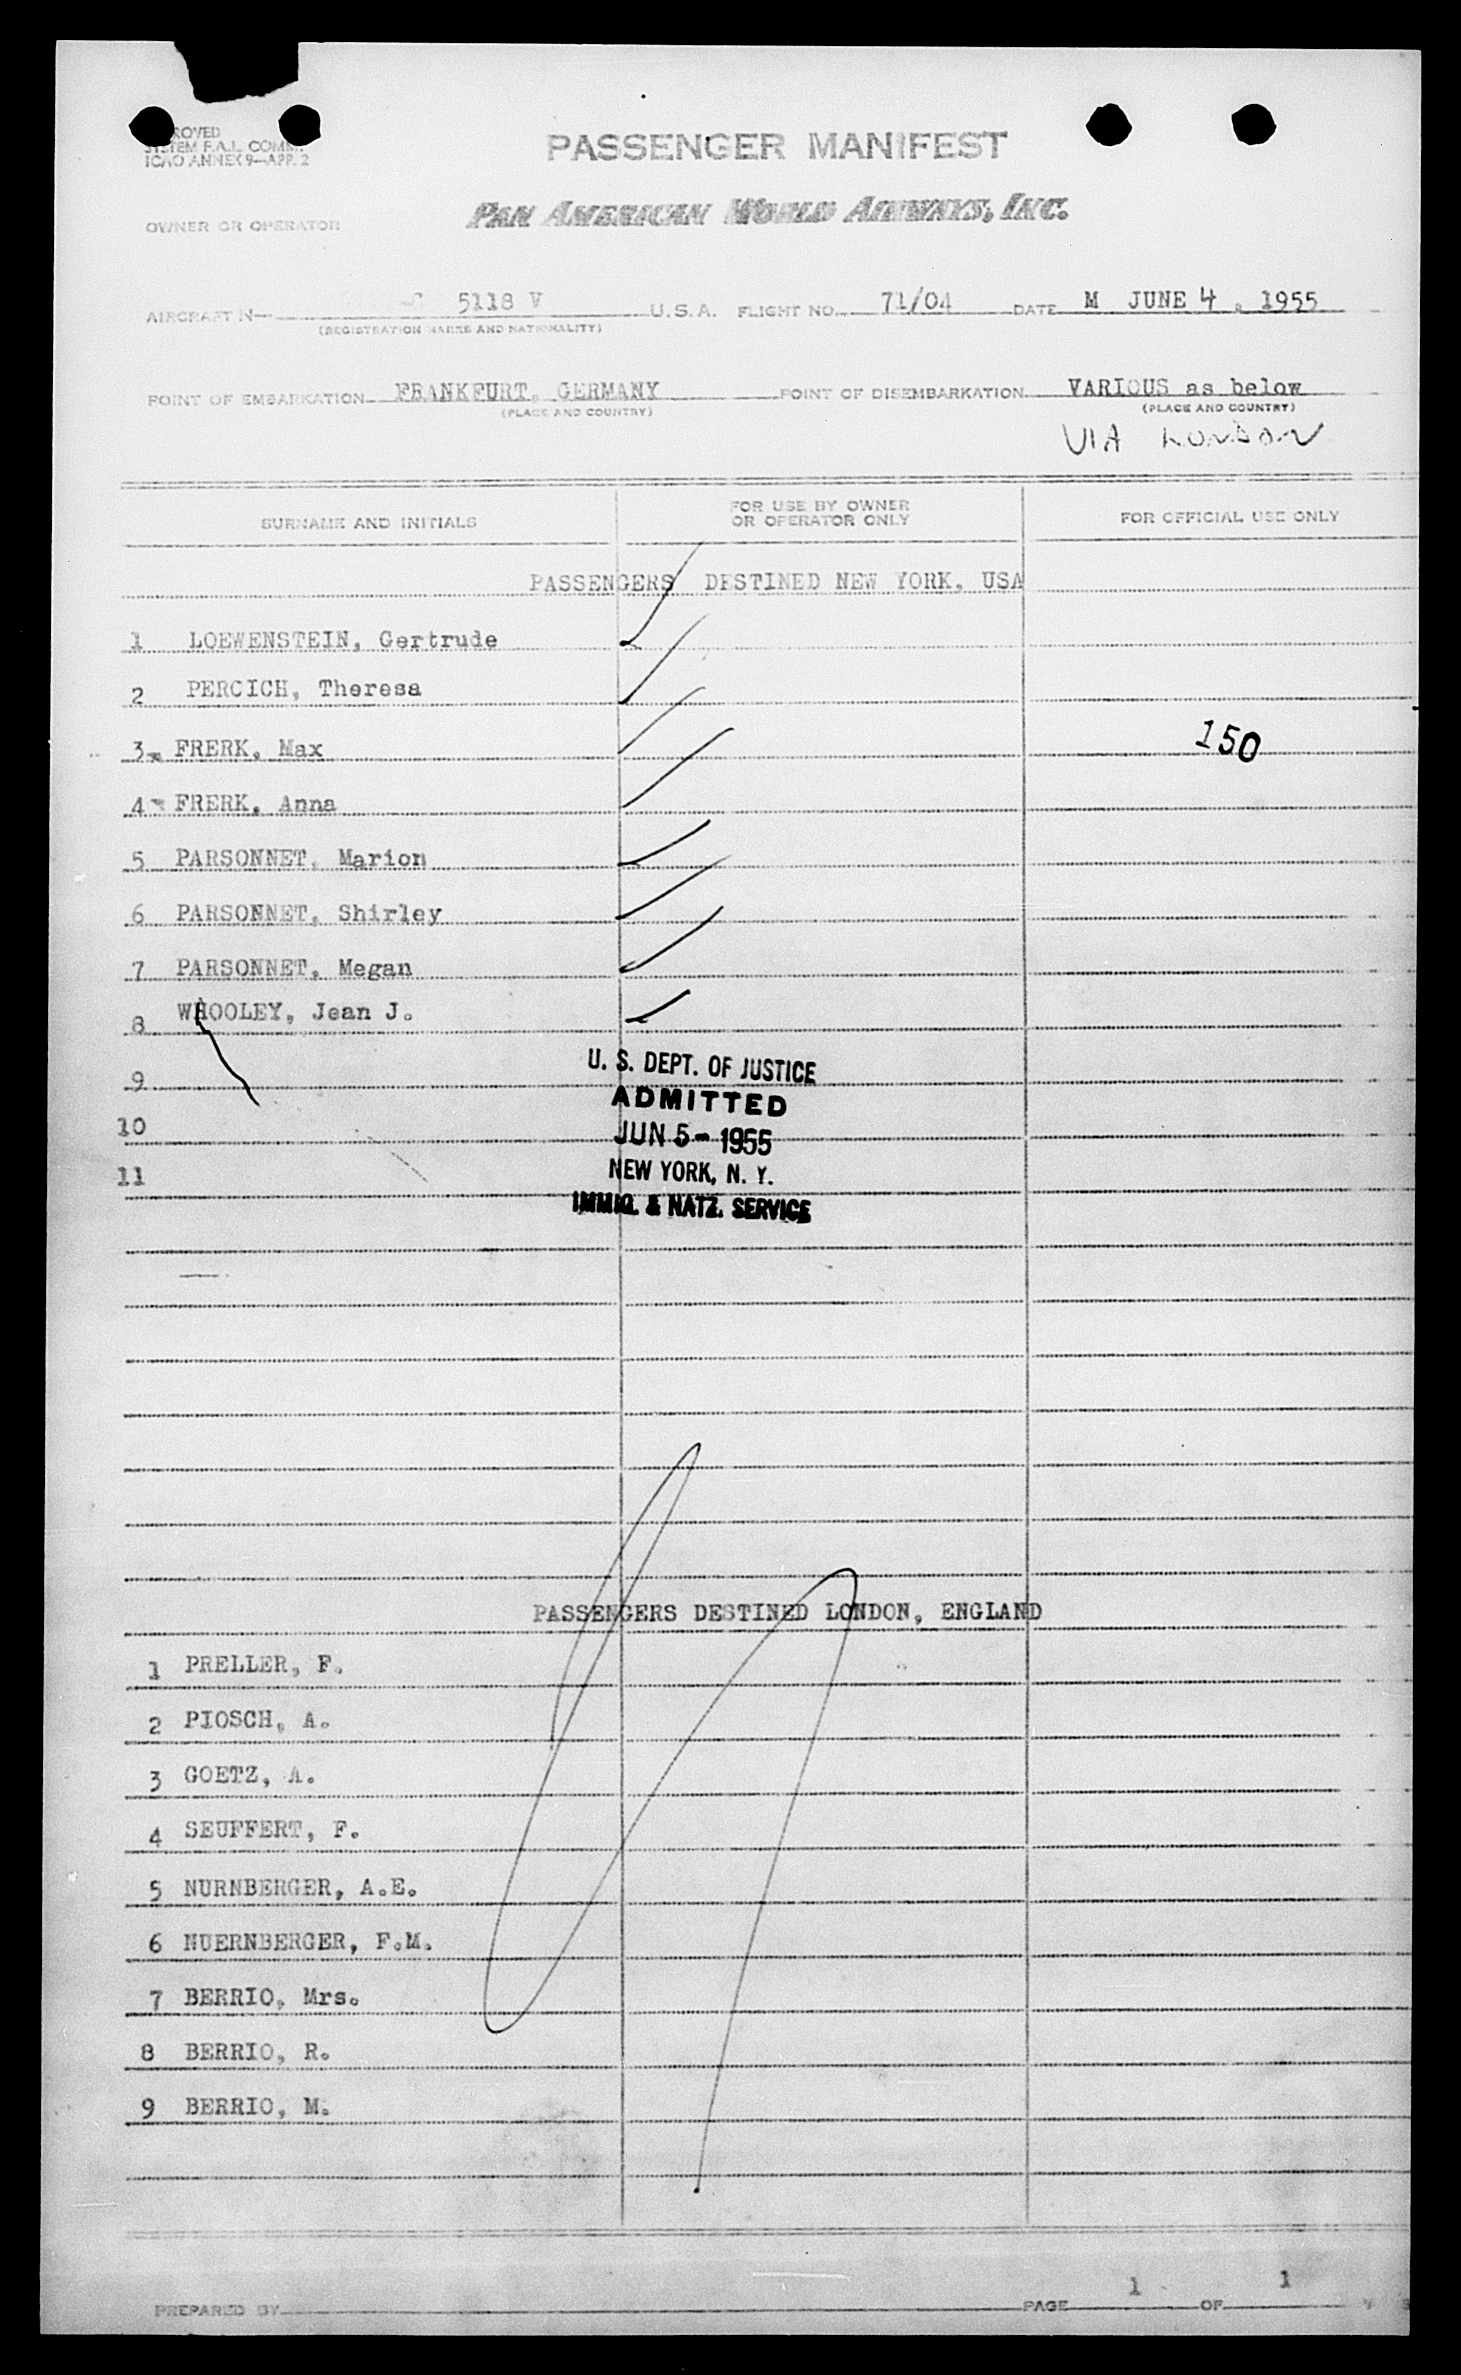 ROVED
SYSTEM F.A.L. COMM.
ICAO ANNEX 9—APP. 2
PASSENGER MANIFEST
OWNER OR OPERATOR
PAN AMERICAN WORLD AIRWAYS, INC.
AIRCRAFT N— 5118 V U.S.A. FLIGHT NO. 71/04 DATE M JUNE 4, 1955
(REGISTRATION MARKS AND NATIONALITY)
POINT OF EMBARKATION FRANKFURT, GERMANY POINT OF DISEMBARKATION VARIOUS as below
(PLACE AND COUNTRY) (PLACE AND COUNTRY)
VIA LONDON
SURNAME AND INITIALS
FOR USE BY OWNER
OR OPERATOR ONLY
FOR OFFICIAL USE ONLY
PASSENGERS DESTINED NEW YORK, USA
1 LOEWENSTEIN, Gertrude
2 PERCICH, Theresa
3 FRERK, Max
150
4 FRERK, Anna
5 PARSONNET, Marion
6 PARSONNET, Shirley
7 PARSONNET, Megan
8 WHOOLEY, Jean J.
9
10
11
U. S. DEPT. OF JUSTICE
ADMITTED
JUN 5 - 1955
NEW YORK, N. Y.
IMMIG. & NATZ. SERVICE
PASSENGERS DESTINED LONDON, ENGLAND
1 PRELLER, F.
2 PIOSCH, A.
3 GOETZ, A.
4 SEUFFERT, F.
5 NURNBERGER, A.E.
6 NUERNBERGER, F.M.
7 BERRIO, Mrs.
8 BERRIO, R.
9 BERRIO, M.
PREPARED BY PAGE 1 OF 1